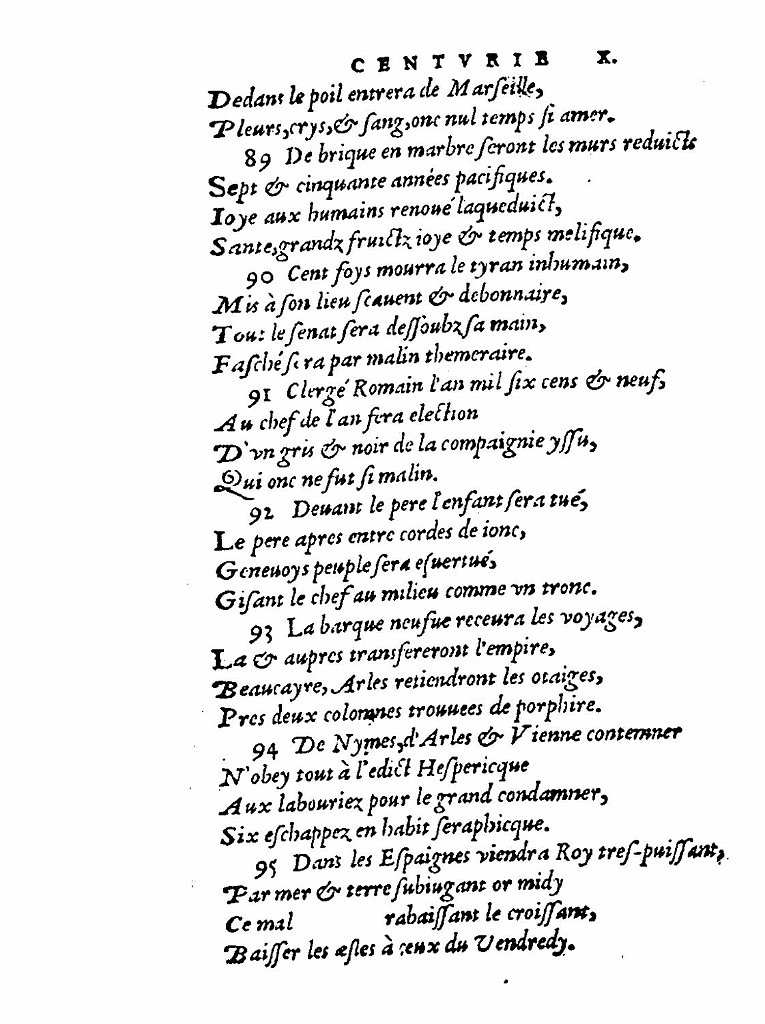 CENTVRIE X.
Dedans le poil entrera de Marſeille,
Pleurs,crys,& ſang,onc nul temps ſi amer.
89 De brique en marbre ſeront les murs reduicts
Sept & cinquante années pacifiques.
Ioye aux humains renoué laqueduict,
Sante,grandz fruictz ioye & temps melifique.
90 Cent foys mourra le tyran inhumain,
Mis à ſon lieu ſcauent & debonnaire,
Tout le ſenat ſera deſſoubz ſa main,
Faſché ſera par malin themeraire.
91 Clergé Romain l'an mil ſix cens & neuf,
Au chef de l'an fera election
D'vn gris & noir de la compaignie yſſu,
Qui onc ne fut ſi malin.
92 Deuant le pere l'enfant ſera tué,
Le pere apres entre cordes de ionc,
Geneuoys peuple ſera eſuertué,
Giſant le chef au milieu comme vn tronc.
93 La barque neufue receura les voyages,
La & aupres transfereront l'empire,
Beaucayre, Arles retiendront les otaiges,
Pres deux colomnes trouuees de porphire.
94 De Nymes,d'Arles & Vienne contemner
N'obey tout à l'edict Heſpericque
Aux labouriez pour le grand condamner,
Six eſchappez en habit ſeraphicque.
95 Dans les Eſpaignes viendra Roy treſ-puiſſant,
Par mer & terre ſubiugant or midy
Ce mal rabaiſſant le croiſſant,
Baiſſer les æſles à ceux du Vendredy.